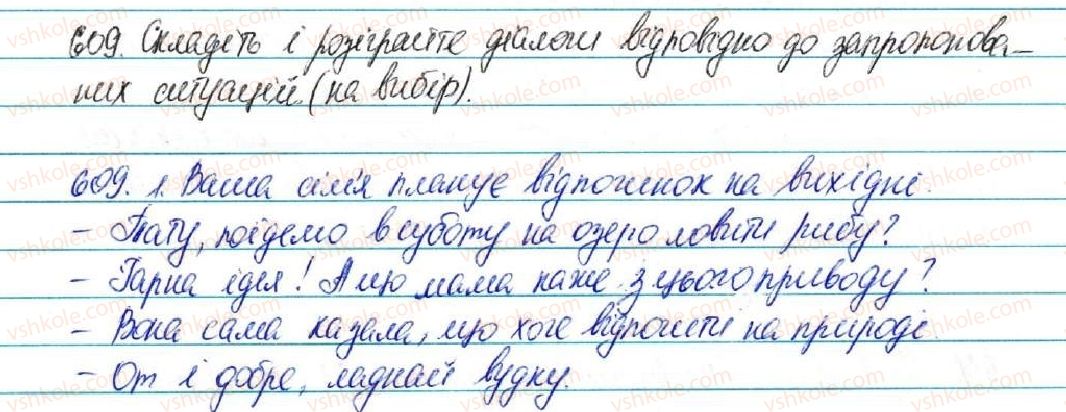 609. Складіть і розіграйте діалоги відповідно до запропонова-
них ситуацій (на вибір).
609. 1. Ваша сім'я планує відпочинок на вихідні.
- Тату, поїдемо в суботу на озеро ловити рибу?
- Гарна ідея! А що мама каже з цього приводу?
- Вона сама казала, що хоче відпочити на природі.
- От і добре, ладнай вудку.